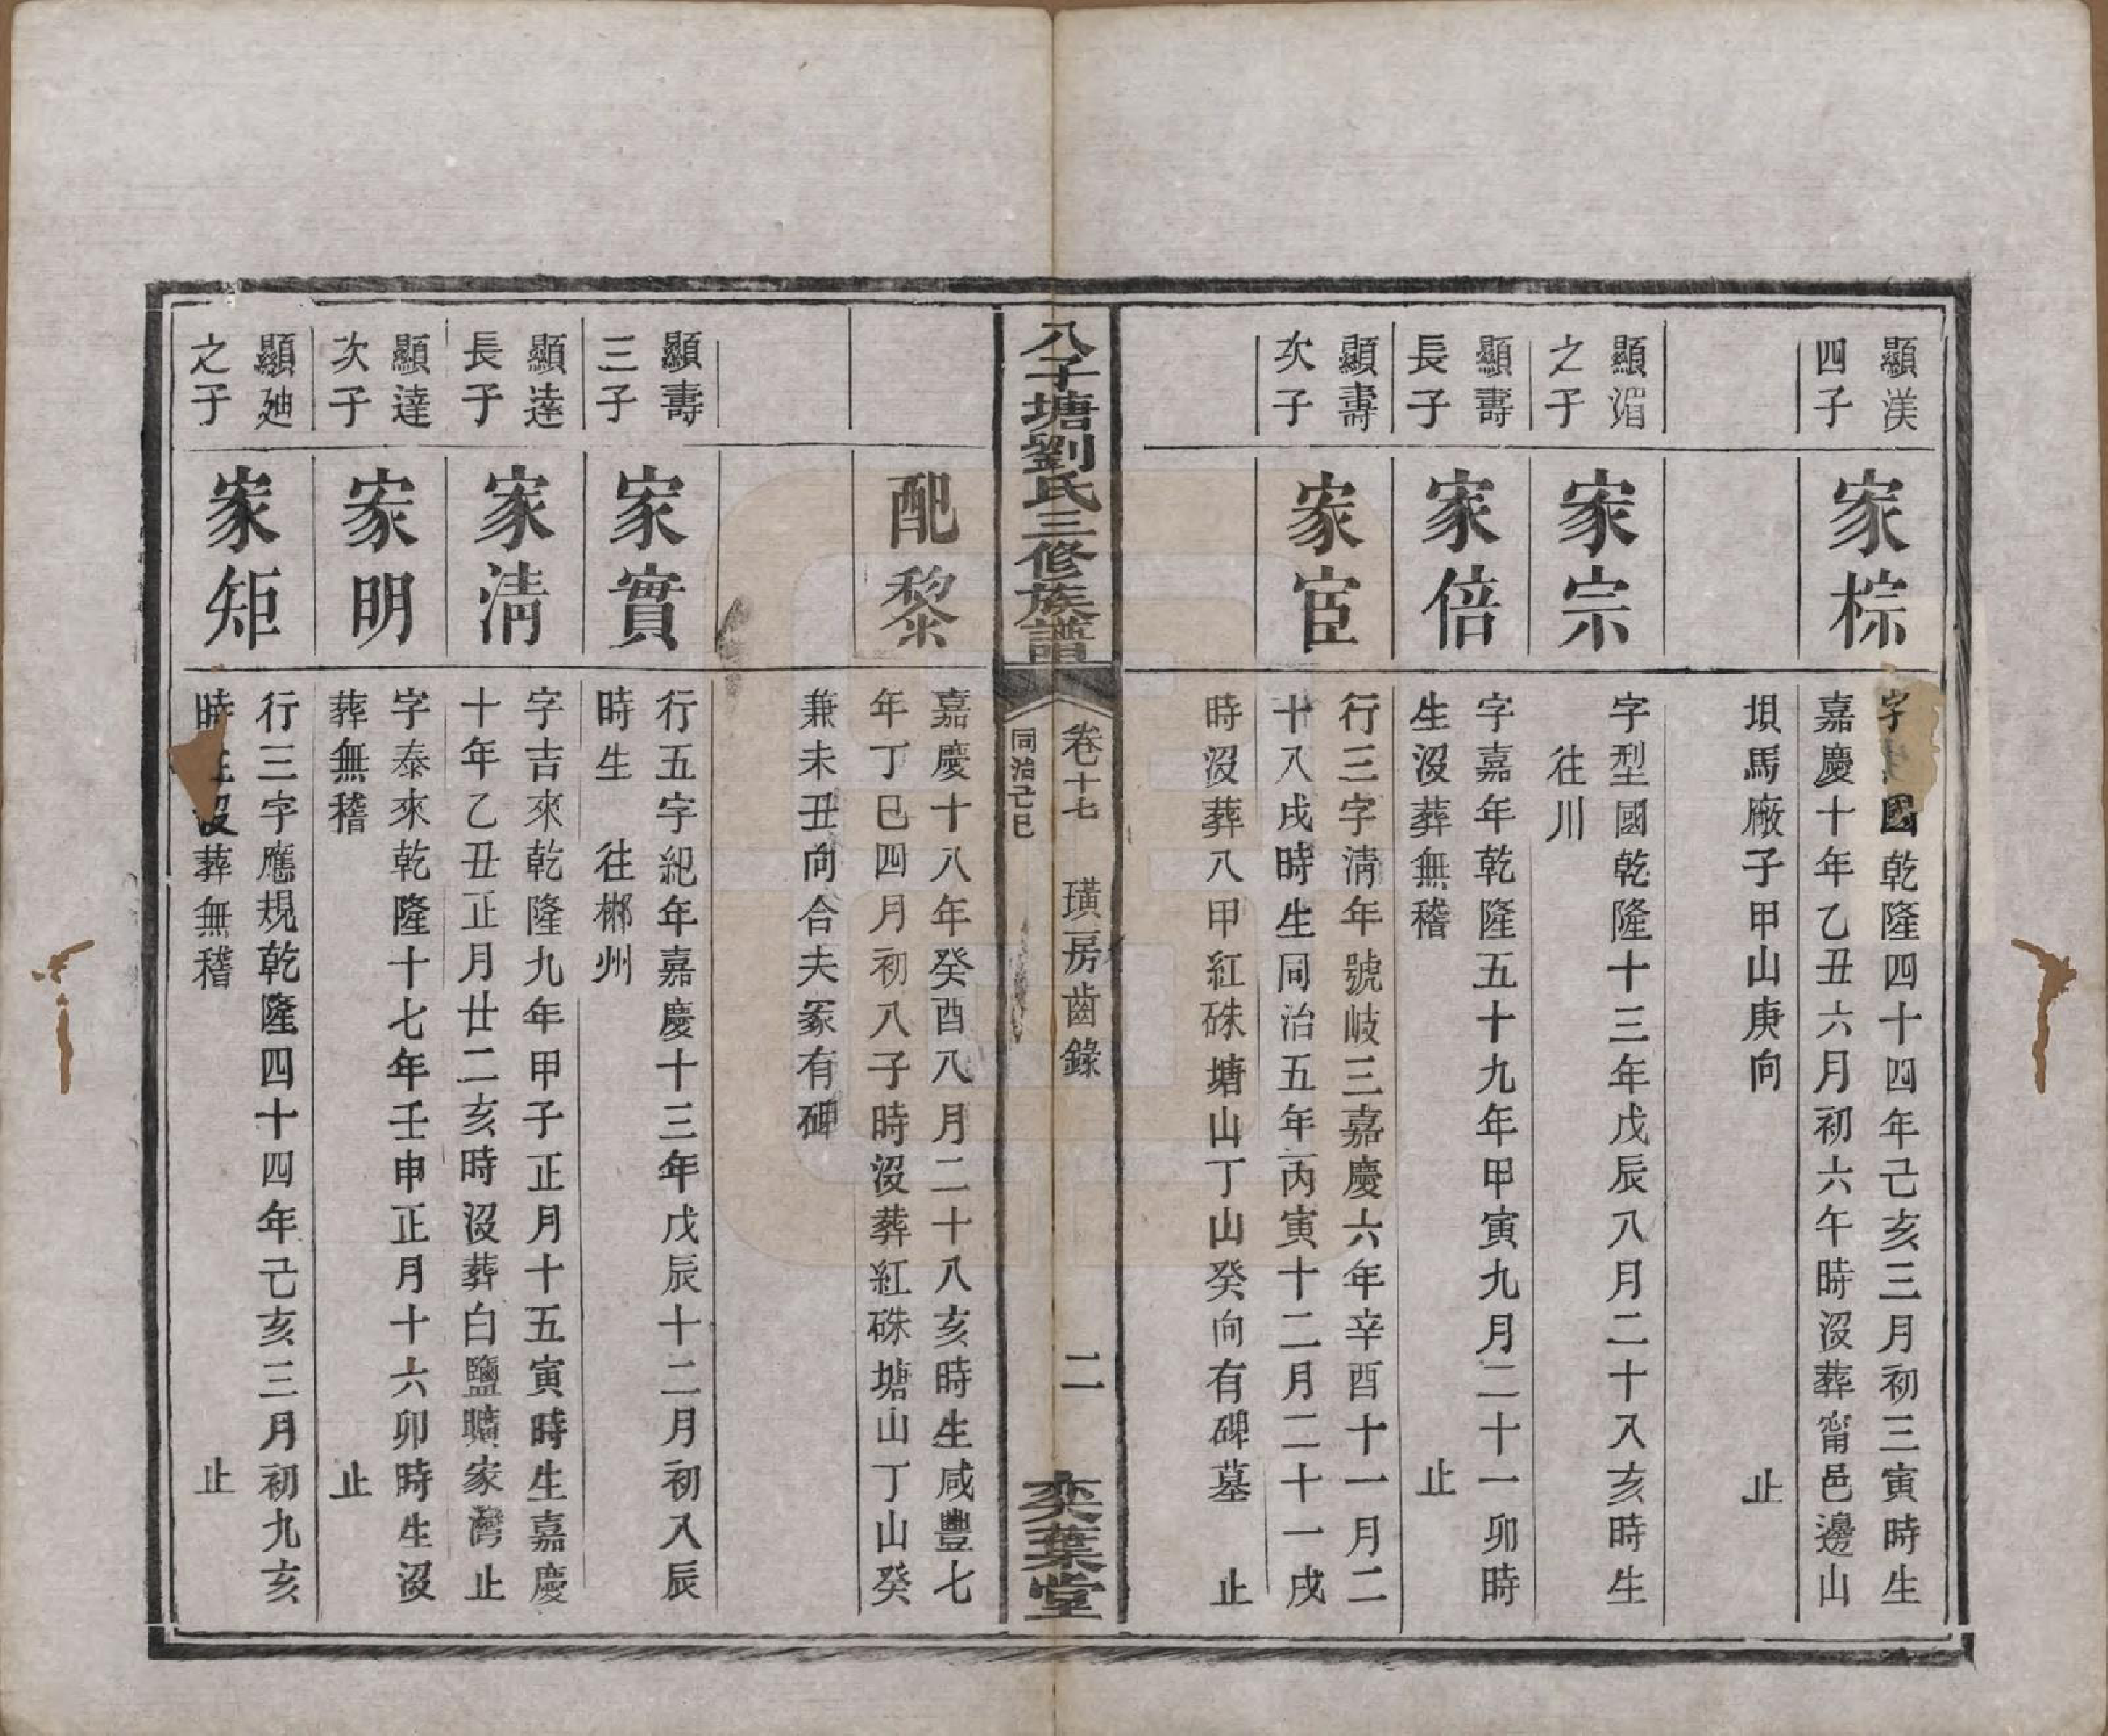 顯渼
四子
家棕
字
國乾隆四十四年己亥三月初三寅時生
嘉慶十年乙丑六月初六午時沒葬甯邑邊山
垻馬廠子甲山庚向
止
顯湄
之子
家宗
字型國乾隆十三年戊辰八月二十八亥時生
往川
顯壽
長子
家倍
字嘉年乾隆五十九年甲寅九月二十一卯時
生沒葬無稽
止
顯壽
次子
家宦
行三字清年號岐三嘉慶六年辛酉十一月二
十八戌時生同治五年丙寅十二月二十一戌
時沒葬八甲紅硃塘山丁山癸向有碑墓
止
八子塘劉氏三修族譜
卷十七
璜房齒錄
二
同治己巳
奕葉堂
配黎
嘉慶十八年癸酉八月二十八亥時生咸豐七
年丁巳四月初八子時沒葬紅硃塘山丁山癸
兼未丑向合夫冢有碑
顯壽
三子
家實
行五字紀年嘉慶十三年戊辰十二月初八辰
時生 往郴州
顯達
長子
家清
字吉來乾隆九年甲子正月十五寅時生嘉慶
十年乙丑正月廿二亥時沒葬白鹽壙家灣止
顯達
次子
家明
字泰來乾隆十七年壬申正月十六卯時生沒
葬無稽
止
顯廸
之子
家矩
行三字應規乾隆四十四年己亥三月初九亥
時生沒葬無稽
止